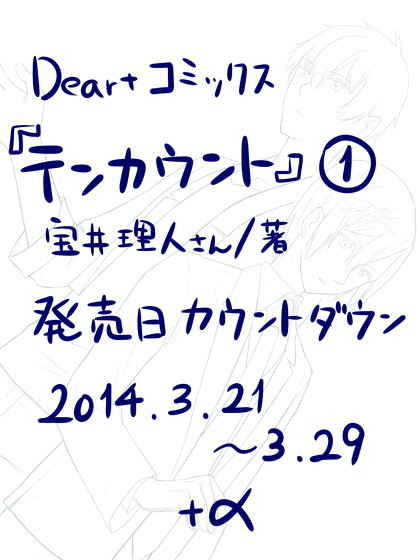 Dear+ コミックス
『テンカウント』①
宝井理人さん/著
発売日カウントダウン
2014.3.21
～3.29
+α